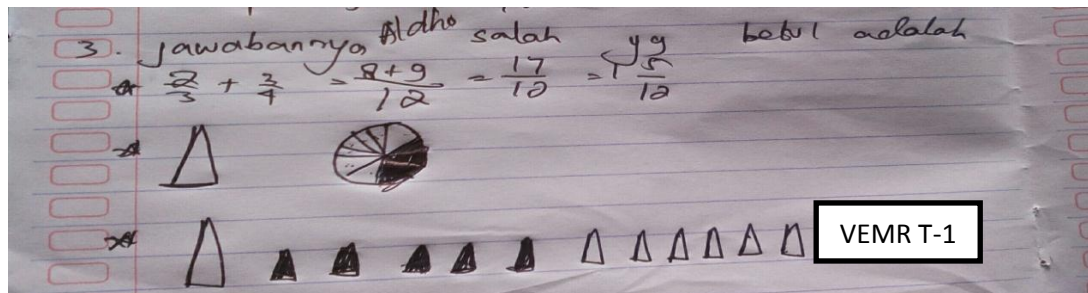 3. jawabannya Aldho salah yg betul adalah
2/3 + 3/4 = 8+9/12 = 17/12 = 1 5/12
VEMR T-1